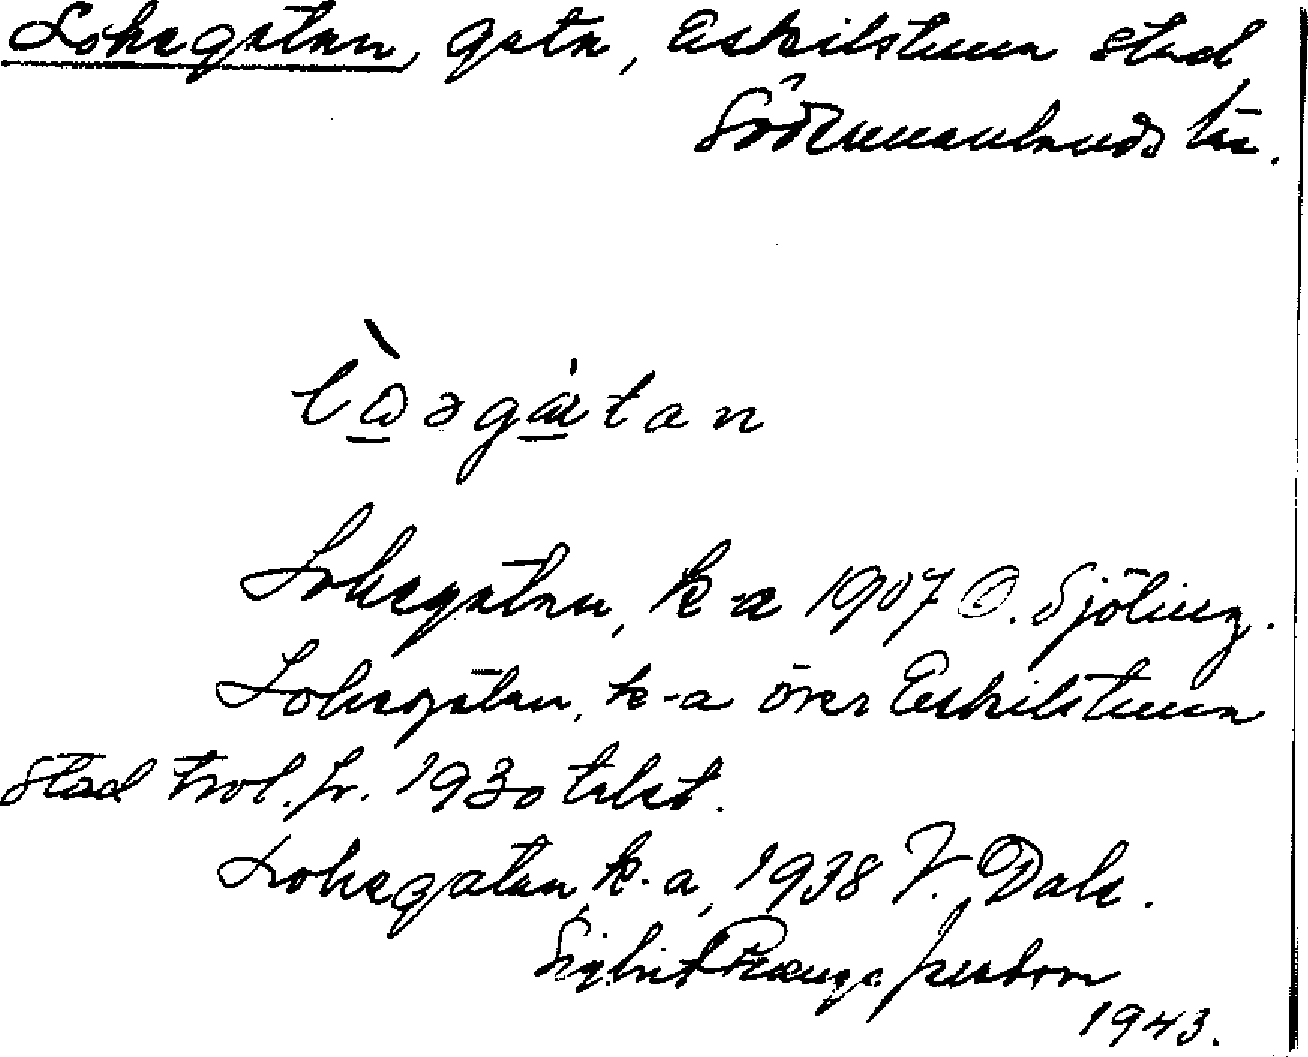 Lohegatan, gata, Eskilstuna stad
Södermanlands län.
Lohegatan, k-a 1907 O. Sjöling.
Lohegatan, k-a över Eskilstuna
stad trol. fr. 1930 talet.
Lohegatan, k-a, 1938 V. Dahl.
Sigbrit
1943.